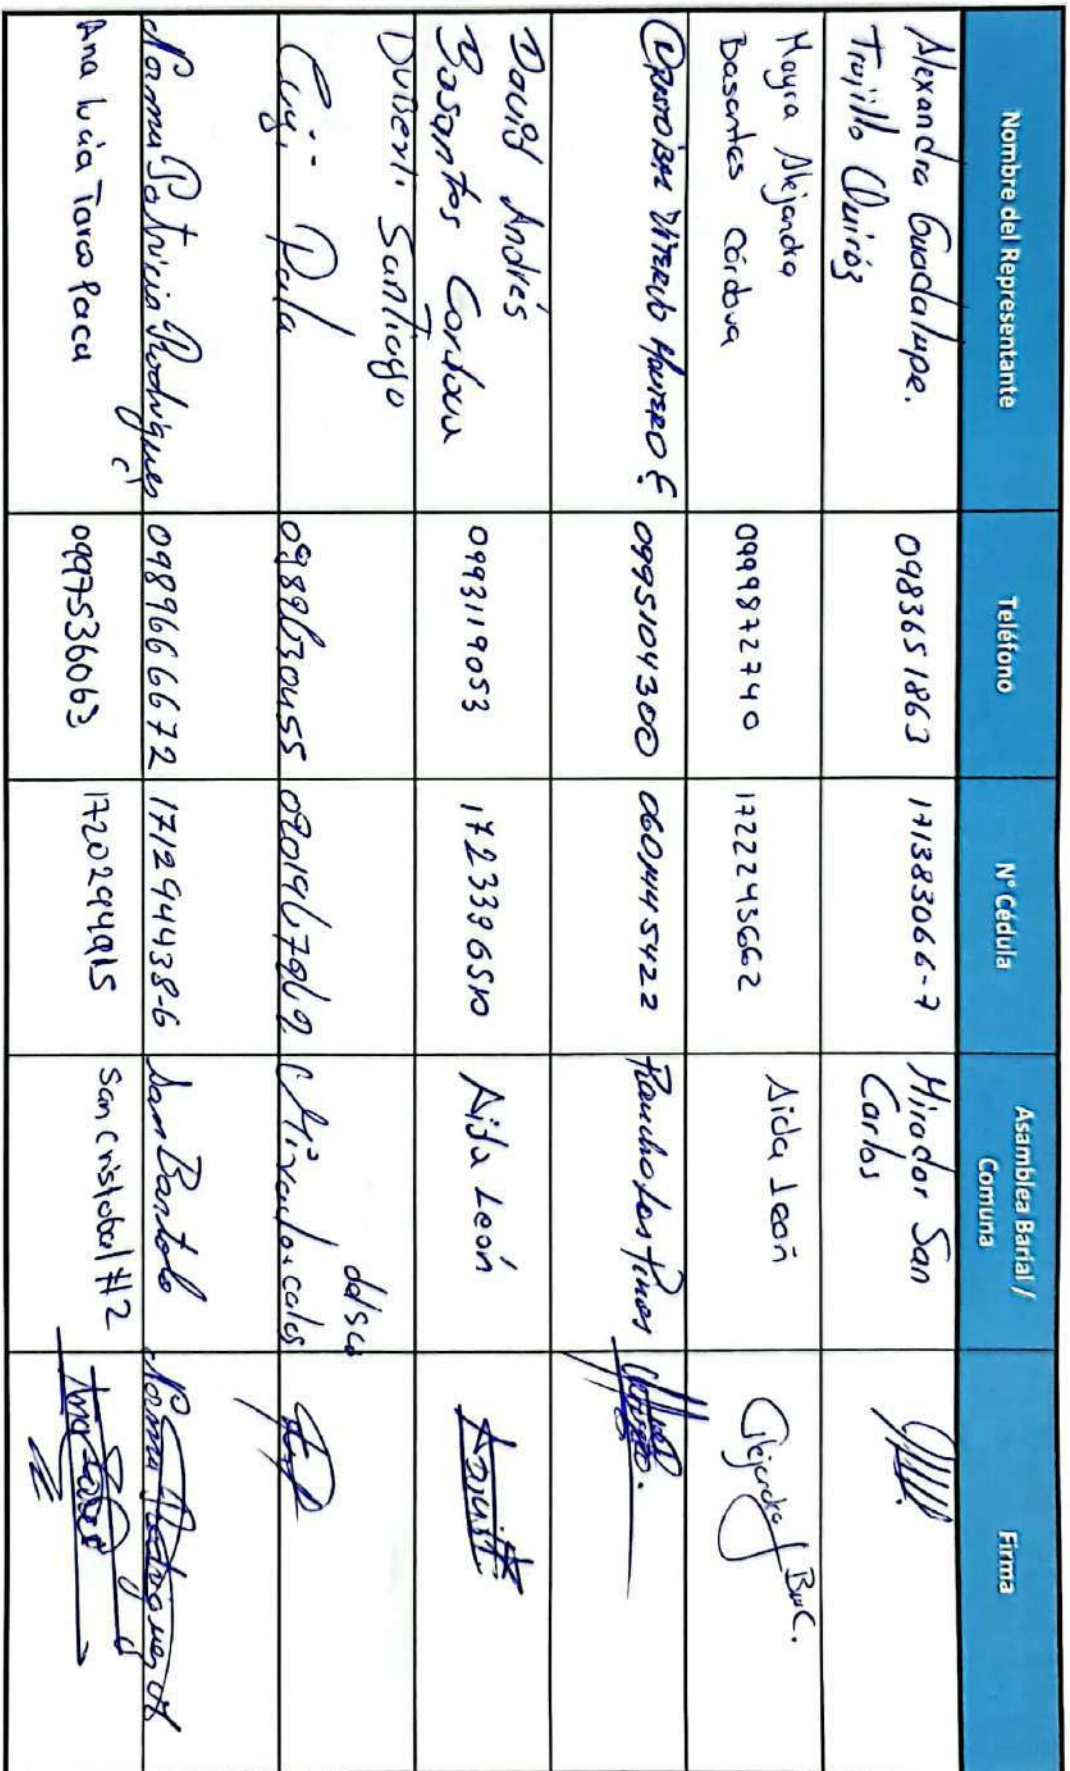 Nombre del Representante
Teléfono
N° Cédula
Asamblea Barial /
Comuna
Firma
Alexandra Guadalupe.
Trujillo Quiróz
0983651863
171383066-7
Mirador San
Carlos
Mayra Alejandra
Basantes Córdova
0999872740
1722243662
Aida León
Alejandra BasC.
0995104300
0601445422
Rancho los Pinos
David Andrés
Basantes Cordova
0993119053
1723396510
Aida León
Duberli Santiago
Cuji Pala
0989630455
0201967969
del sco
Norma Patricia Rodriguez
C
0989666672
171294438-6
San Bartolo
Norma Rodriguez
Ana lucia Taros Paca
0997536063
1720294915
San Cristobal #2